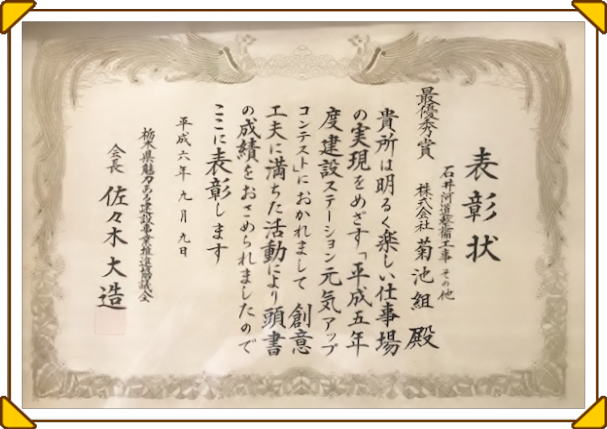 表彰状
最優秀賞
石井河道整備工事 その他
株式会社 菊池組 殿
貴所は明るく楽しい仕事場
の実現をめざす「平成五年
度建設ステーション元気アップ
コンテスト」におかれまして 創意
工夫に満ちた活動により頭書
の成績をおさめられましたので
ここに表彰します
平成六年九月九日
栃木県魅力ある建設事業推進協議会
会長 佐々木大造